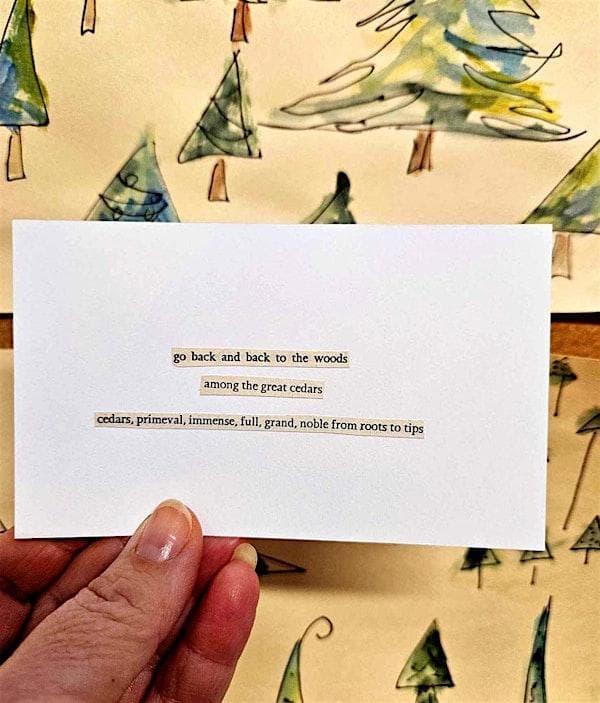 go back and back to the woods
among the great cedars
cedars, primeval, immense, full, grand, noble from roots to tips